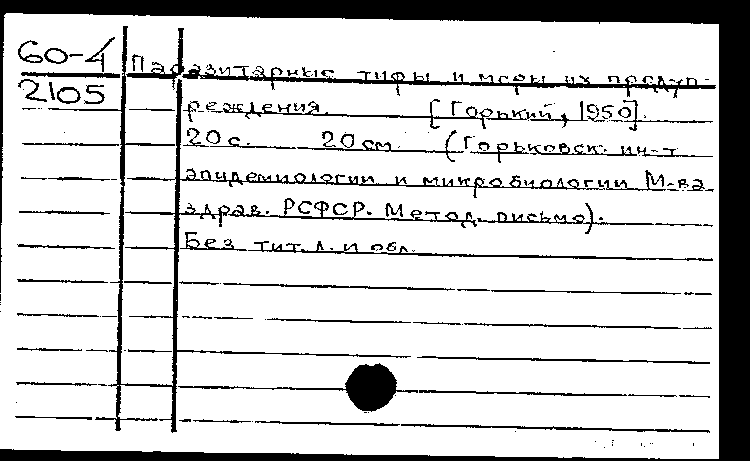 60-4 Паразитарные тифы и меры их предуп-
2105 реждения. [Горький, 1950].
20 с. 20 см. (Горьковск. ин-т
эпидемиологии и микробиологии М-ва
здрав. РСФСР. Метод. письмо).
Без тит. л. и обл.